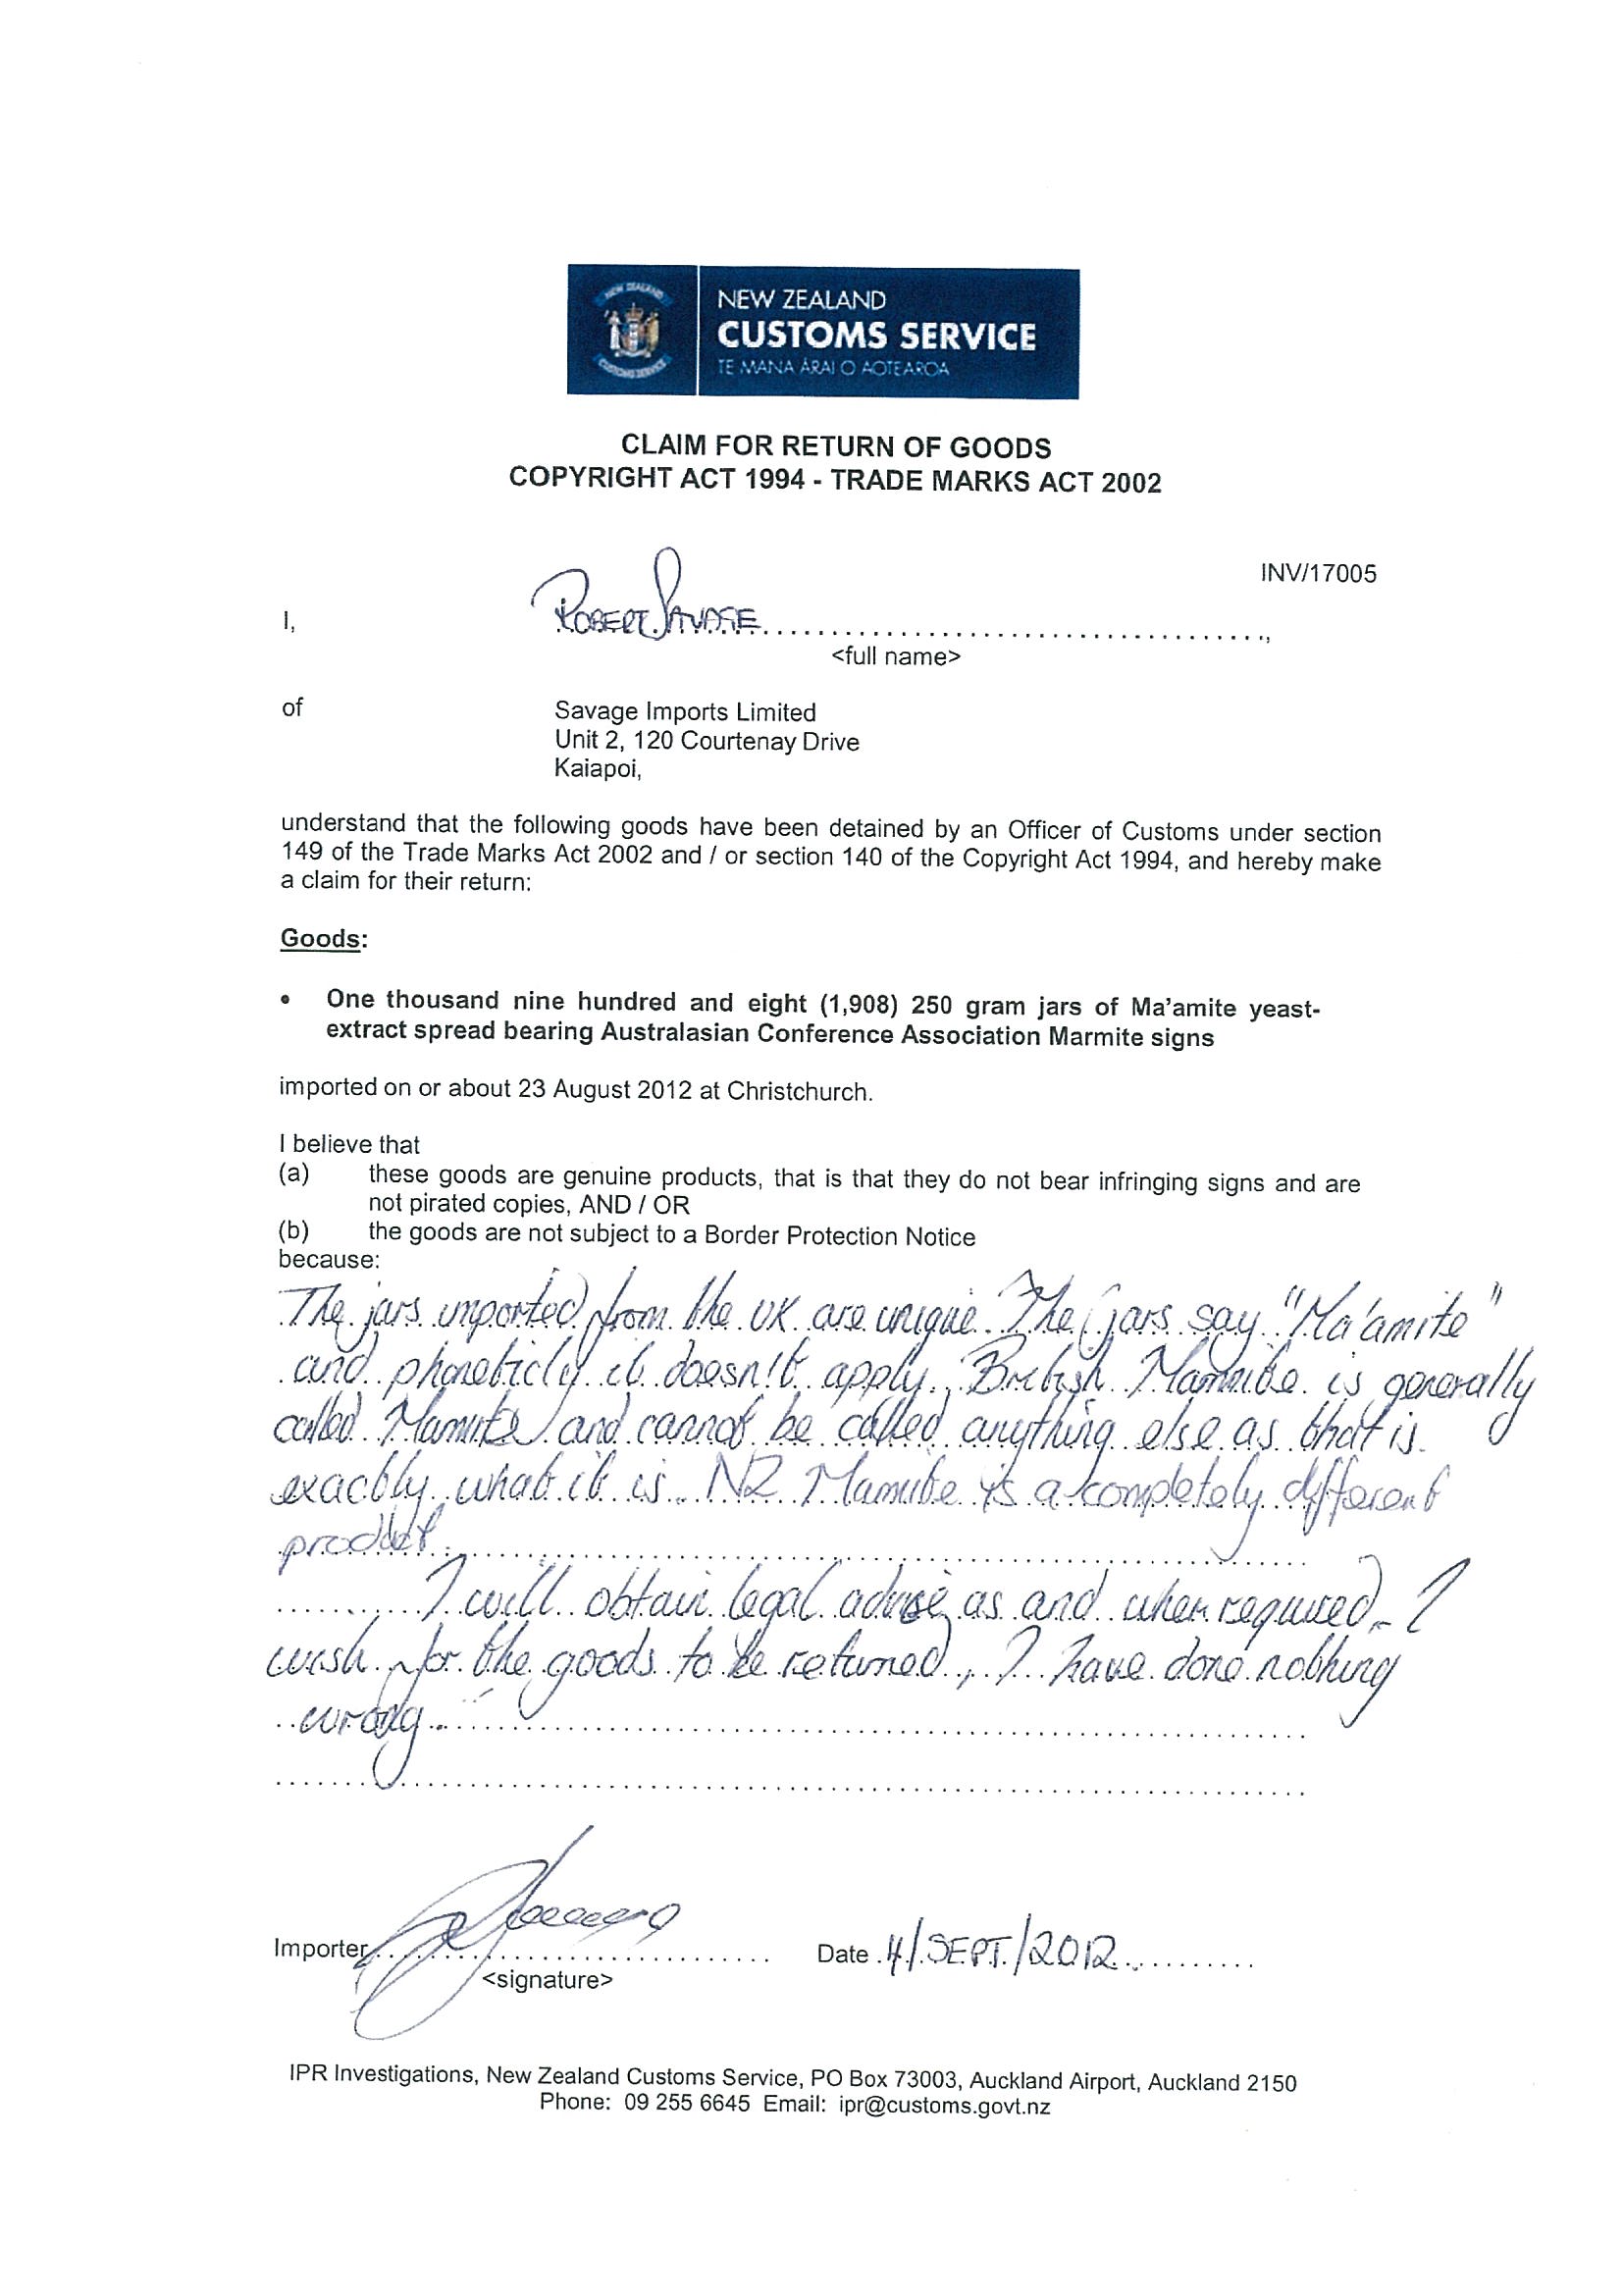 NEW ZEALAND
CUSTOMS SERVICE
NEW ZEALAND
CUSTOMS SERVICE
TE MANA ĀRAI O AOTEAROA
CLAIM FOR RETURN OF GOODS
COPYRIGHT ACT 1994 - TRADE MARKS ACT 2002
INV/17005
I, ROBERT SAVAGE.......................................,
<full name>
of Savage Imports Limited
Unit 2, 120 Courtenay Drive
Kaiapoi,
understand that the following goods have been detained by an Officer of Customs under section
149 of the Trade Marks Act 2002 and / or section 140 of the Copyright Act 1994, and hereby make
a claim for their return:
Goods:
• One thousand nine hundred and eight (1,908) 250 gram jars of Ma'amite yeast-
extract spread bearing Australasian Conference Association Marmite signs
imported on or about 23 August 2012 at Christchurch.
I believe that
(a) these goods are genuine products, that is that they do not bear infringing signs and are
not pirated copies, AND / OR
(b) the goods are not subject to a Border Protection Notice
because:
The jars imported from the UK are unique. The jars say "Ma'amite"
and phoneticly it doesn't apply. British Marmite is generally
called Marmite and cannot be called anything else as that is
exactly what it is. NZ Marmite is a completely different
product
I will obtain legal advise as and when required. I
wish for the goods to be returned, I have done nothing
wrong
Importer
<signature>
Date 4/SEPT./2012
IPR Investigations, New Zealand Customs Service, PO Box 73003, Auckland Airport, Auckland 2150
Phone: 09 255 6645 Email: ipr@customs.govt.nz